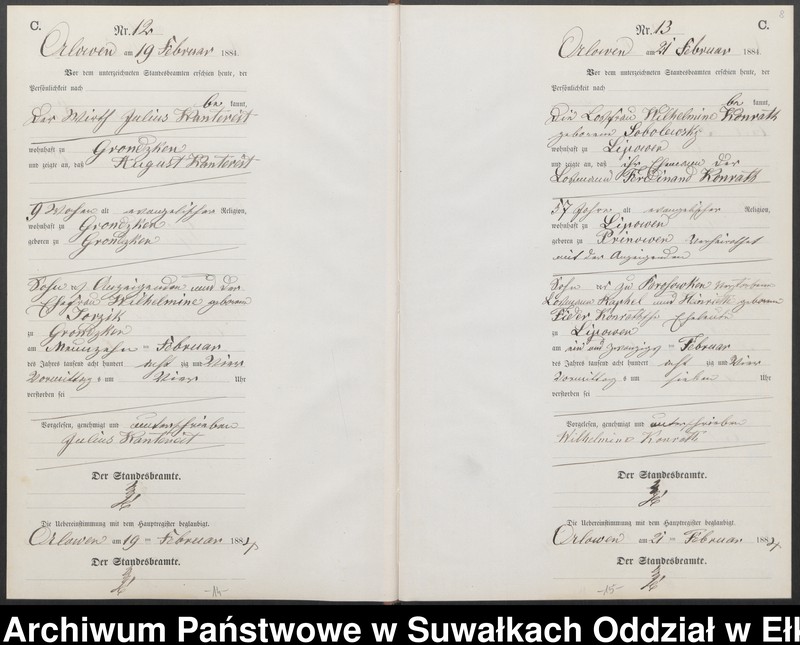 C.
Nr. 12
Orlowen am 19 Februar 1884
Vor dem unterzeichneten Standesbeamten erschien heute, der
Persönlichkeit nach
be kannt,
der Wirth Julius Kantereit
wohnhaft zu Grondzken
und zeigte an, daß August Kantereit
9 Wochen alt evangelischer Religion,
wohnhaft zu Grondzken
geboren zu Grondzken
Sohn des Anzeigenden und der
Ehefrau Wilhelmine geborene
zu Grondzken
am Neunzehn = Februar
des Jahres tausend acht hundert acht zig und Vier
Vormittags um Vier Uhr
verstorben sei
Vorgelesen, genehmigt und unterschrieben
Julius Kantereit
Der Standesbeamte.
Die Uebereinstimmung mit dem Hauptregister beglaubigt.
Orlowen am 19 = Februar 1884
Der Standesbeamte.
-14-
C.
Nr. 13
Orlowen am 21 Februar 1884
Vor dem unterzeichneten Standesbeamten erschien heute, der
Persönlichkeit nach
be kannt,
Die Losfrau Wilhelmine Konrath
geborene Sobolewski
wohnhaft zu Lipowen
und zeigte an, daß ihr Ehemann der
Losmann Ferdinand Konrath
57 Jahre alt evangelischer Religion,
wohnhaft zu Lipowen
geboren zu Prinowen verheirathet
mit der Anzeigenden
Sohn der zu verstorbenen
Losmann und geborene
Konrathschen Eheleute
zu Lipowen
am ein und zwanzigsten = Februar
des Jahres tausend acht hundert acht zig und Vier
Vormittags um sieben Uhr
verstorben sei
Vorgelesen, genehmigt und unterschrieben
Wilhelmine Konrath
Der Standesbeamte.
Die Uebereinstimmung mit dem Hauptregister beglaubigt.
Orlowen am 21 = Februar 1884
Der Standesbeamte.
-15-
Archiwum Państwowe w Suwałkach Oddział w Ełk